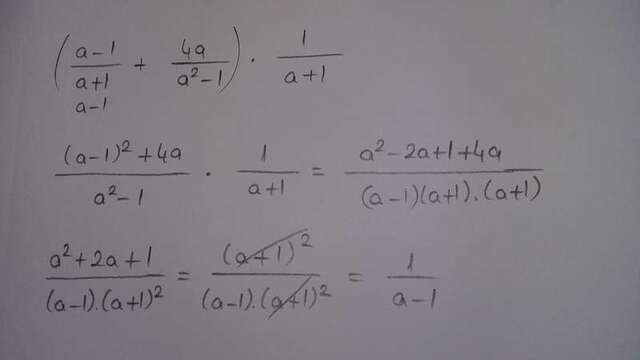 ( (a-1)/(a+1) + 4a/(a²-1) ) · 1/(a+1)
a-1
((a-1)²+4a)/(a²-1) · 1/(a+1) = (a²-2a+1+4a)/((a-1)(a+1).(a+1))
(a²+2a+1)/((a-1).(a+1)²) = (a+1)²/((a-1).(a+1)²) = 1/(a-1)